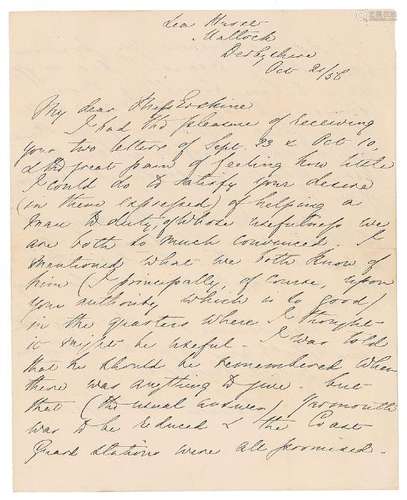 Lea Hurst
Matlock
Derbyshire
Oct 21/56
My dear Miss Erskine
I had the pleasure of receiving
your two letters of Sept. 23 & Oct 10,
& the great pain of feeling how little
I could do to satisfy your desire
(in them expressed) of helping a
man to duty of whose usefulness we
are both so much convinced. I
mentioned what we both know of
him (I principally, of course, upon
your authority which is so good)
in the quarters where I thought
it might be useful. I was told
that he should be remembered when
there was anything to give. but
that (the usual answer) Yarmouth
was to be reduced & the Coast
Guard stations were all promised.